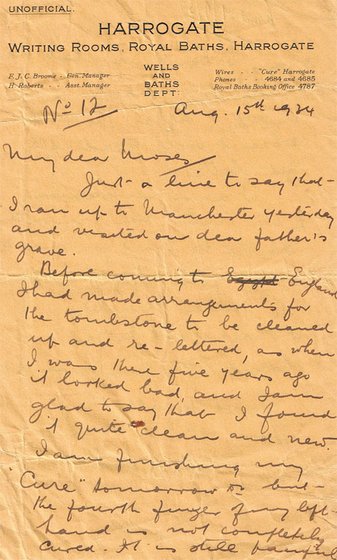 UNOFFICIAL.
HARROGATE
WRITING ROOMS, ROYAL BATHS, HARROGATE
F. J. C. Broome - Gen. Manager
H. Roberts - - Asst. Manager
WELLS
AND
BATHS
DEPT:
Wires - - "Cure" Harrogate
Phones - - 4684 and 4685
Royal Baths Booking Office 4787
No 12
Aug. 15th 1924
My dear Moses
Just a line to say that
I ran up to Manchester yesterday
and visited our dear father's
grave.
Before coming to Egypt England
I had made arrangements for
the tombstone to be cleaned
up and re-lettered, as when
I was there five years ago
it looked bad, and I am
glad to say that I found
it quite clean and new.
I am finishing my
"Cure" tomorrow but
the fourth finger of my left
hand is not completely
cured. It is still painful